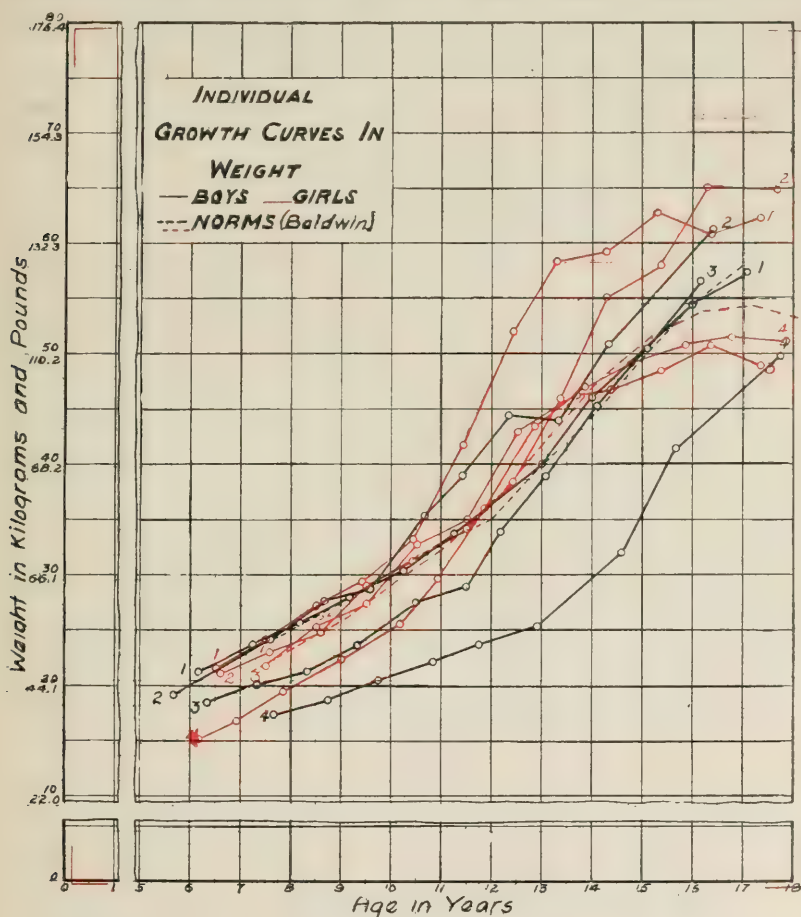 INDIVIDUAL
GROWTH CURVES IN
WEIGHT
BOYS GIRLS
NORMS (Baldwin)
Weight in Kilograms and Pounds
80
176.4
70
154.3
60
132.3
50
110.2
40
68.2
30
66.1
20
44.1
10
22.0
0
2
1
2
3
1
4
4
1
1
2
2
3
3
4
0 1 5 6 7 8 9 10 11 12 13 14 15 16 17 18
Age in Years